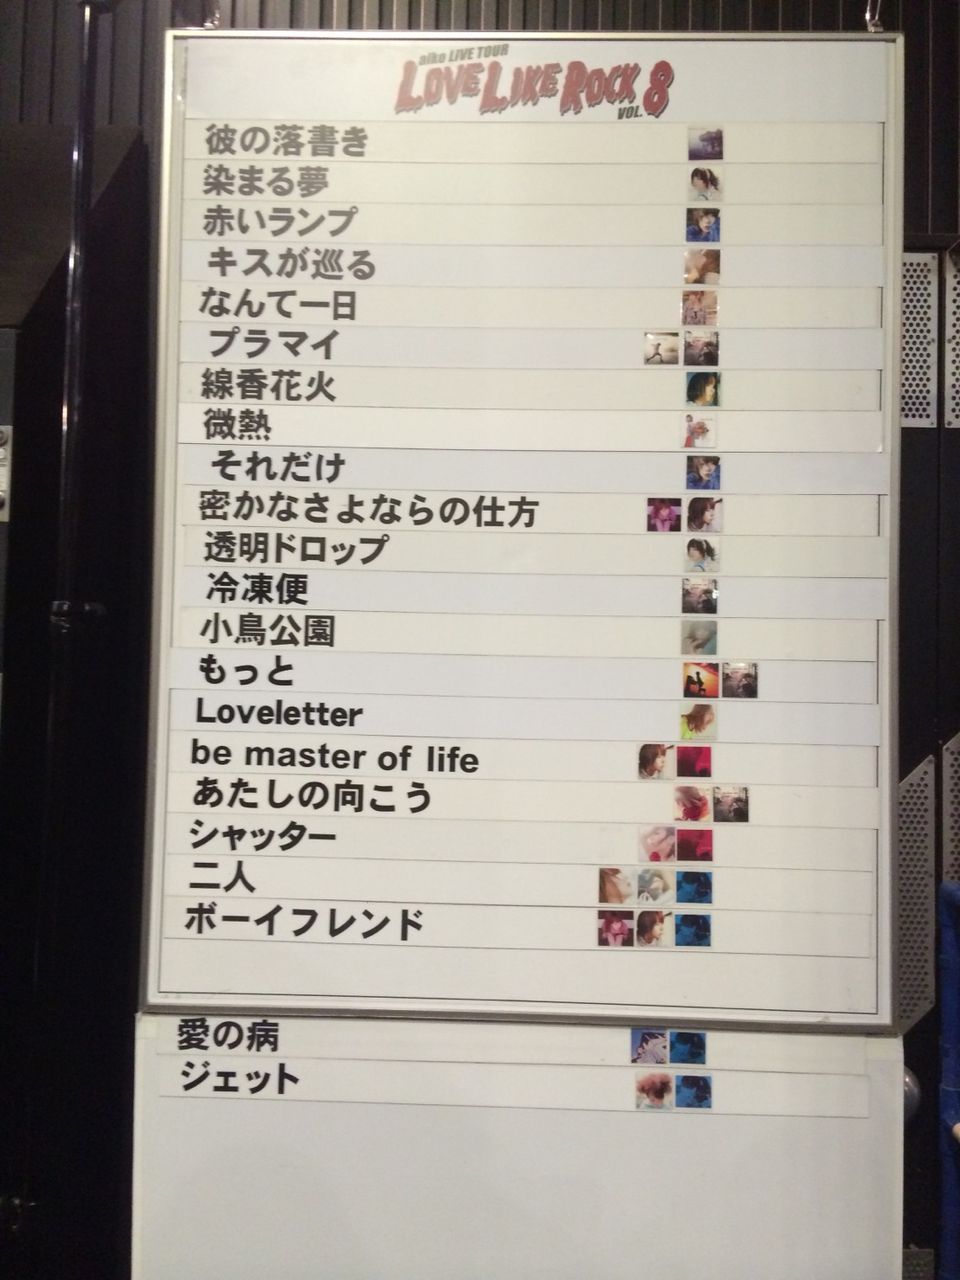 aiko LIVE TOUR
LOVE LIKE ROCK VOL. 8
彼の落書き
染まる夢
赤いランプ
キスが巡る
なんて一日
プラマイ
線香花火
微熱
それだけ
密かなさよならの仕方
透明ドロップ
冷凍便
小鳥公園
もっと
Loveletter
be master of life
あたしの向こう
シャッター
二人
ボーイフレンド
愛の病
ジェット